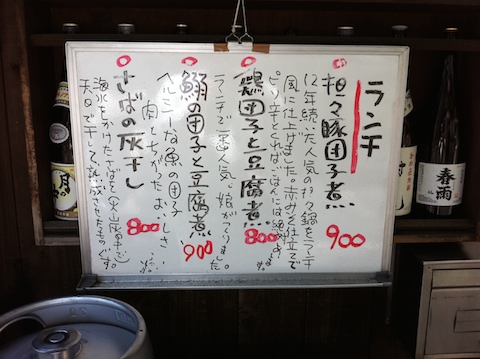 ランチ
担々豚団子煮
12年続いた人気の担々鍋をランチ
風に仕上げました。赤みそ仕立てで
ピリ辛とくればごはんには絶妙です
900
鶏団子と豆腐煮
ランチで一番人気。
800
鰯団子と豆腐煮
ヘルシーな魚の団子
肉とちがったおいしさ
900
さばの灰干し
海水をかけたさばを
天日で干して熟成させたものです。
800
春雨